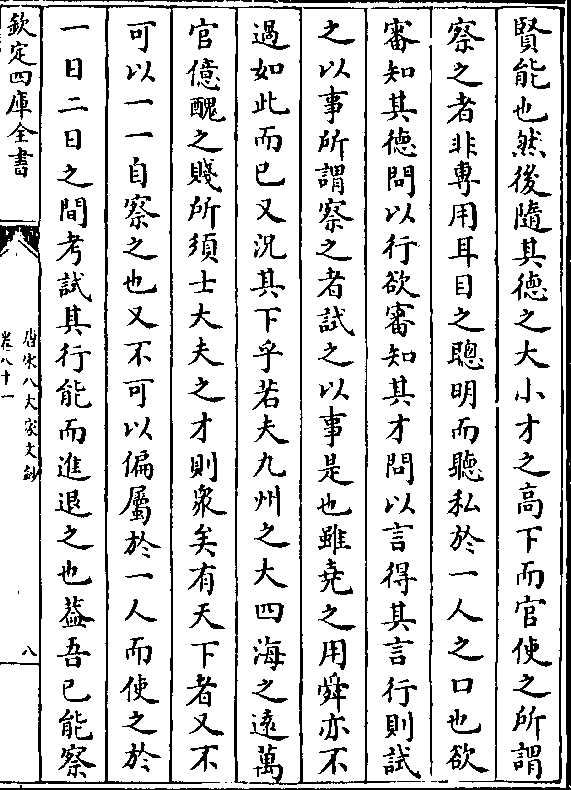 賢能也然後隨其德之大小才之高下而官使之所謂
察之者非專用耳目之聰明而聽私於一人之口也欲
審知其德問以行欲審知其才問以言得其言行則試
之以事所謂察之者試之以事是也雖堯之用舜亦不
過如此而已又況其下乎若夫九州之大四海之遠萬
官億醜之賤所須士大夫之才則衆矣有天下者又不
可以一一自察之也又不可以偏屬於一人而使之於
一日二日之間考試其行能而進退之也葢吾已能察
欽定四庫全書
唐宋八大家文鈔
卷八十一
八